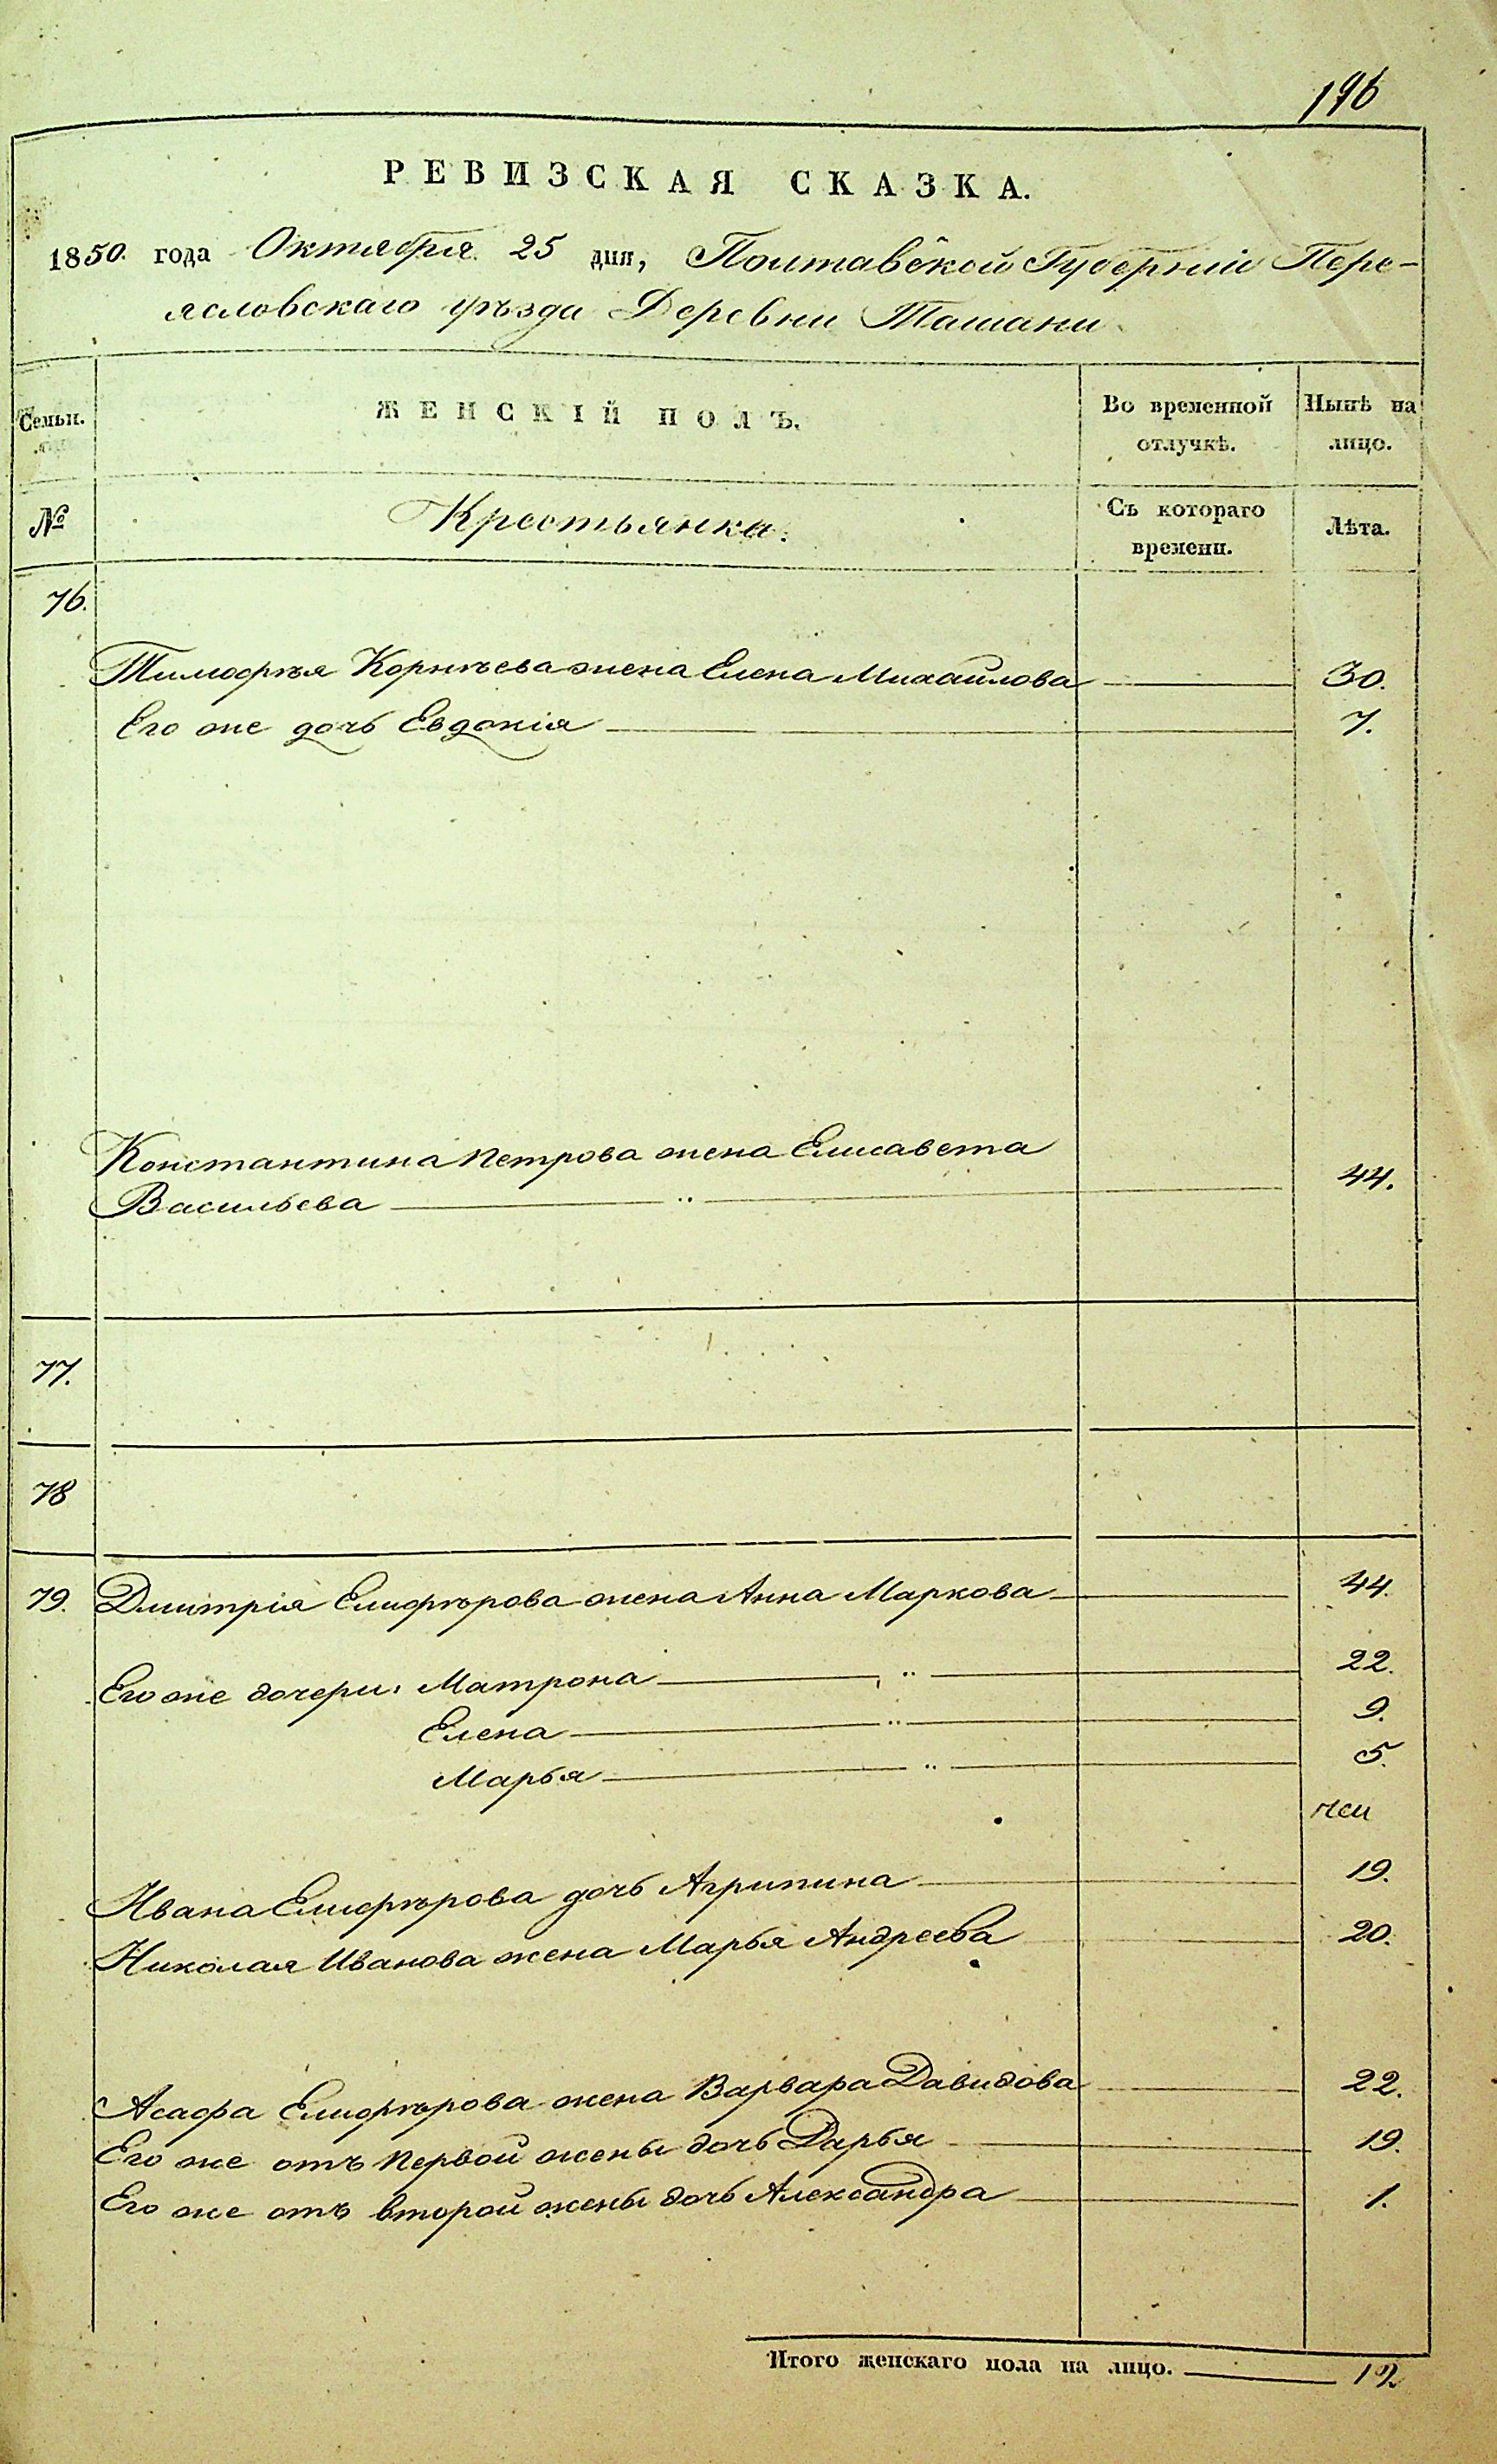 196
РЕВИЗСКАЯ СКАЗКА.
1850. года Октября 25 дня, Полтавской Губерніи Пере-
яславскаго уѣзда Деревни Ташани
Семьи.
ЖЕНСКІЙ ПОЛЪ.
Во временной отлучкѣ.
Нынѣ на лицо.
№
Крестьянка.
Съ котораго времени.
Лѣта.
76.
Тимофѣя Корнѣева жена Елена Михайлова 30.
Его же дочь Евдокія 7.
Константина Петрова жена Елисавета
Васильева 44.
77.
78
79. Дмитрія Елифѣрова жена Анна Маркова 44.
Его же дочери: Матрона 22.
Елена 9.
Марья 5.
Ивана Елифѣрова дочь Агрипина 19.
Николая Иванова жена Марья Андреева 20.
Асафа Елифѣрова жена Варвара Давидова 22.
Его же отъ первой жены дочь Дарья 19.
Его же отъ второй жены дочь Александра 1.
Итого женскаго пола на лицо. 12